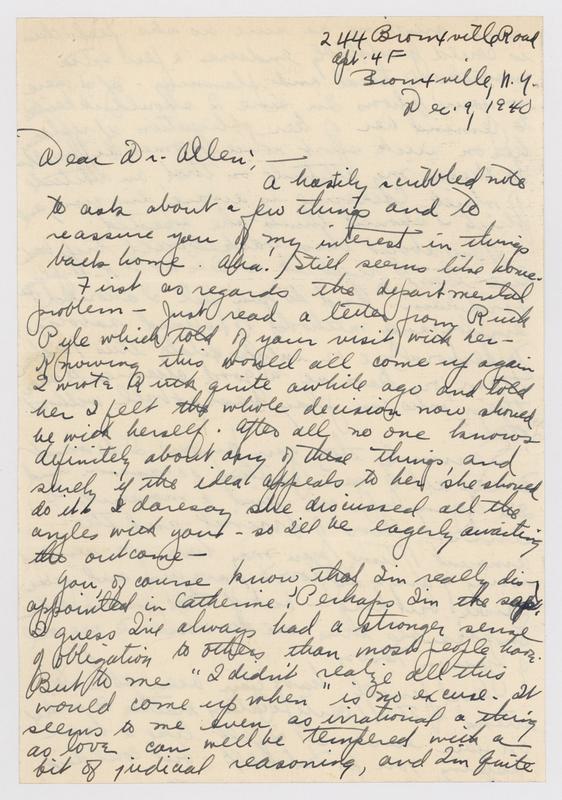 244 Bronxville Road
Apt. 4F
Bronxville, N.Y.
Dec. 9, 1940
Dear Dr. Allen: —
A hastily scribbled note
to ask about a few things and to
reassure you of my interest in things
back home. Aha! Still seems like home.
First as regards the departmental
problem — Just read a letter from Ruth
Pyle which told of your visit with her —
Knowing this would all come up again
I wrote Ruth quite awhile ago and told
her I felt the whole decision now should
be with herself. After all no one knows
definitely about any of these things and
surely if the idea appeals to her she should
do it. I daresay she discussed all the
angles with you — so I'll be eagerly awaiting
the outcome —
You, of course know that I'm really dis-
appointed in Catherine! Perhaps I'm the sap.
I guess I've always had a stronger sense
of obligation to others than most people have.
But to me "I didn't realize all this
would come up when" is no excuse. It
seems to me even as irrational a thing
as love can well be tempered with a
bit of judicial reasoning, and I'm quite